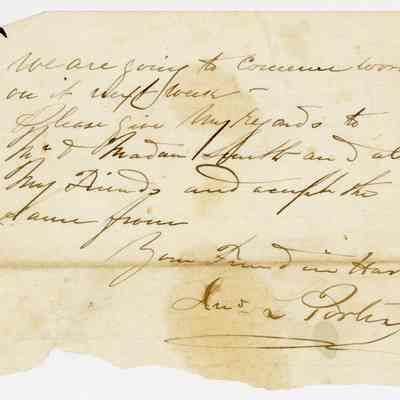 We are going to commence wor
on it next week -
Please give my regards to
Mr & Madam Smith and al
My Friends and accept the
same from
Your Friend in Har
Jno L Porter